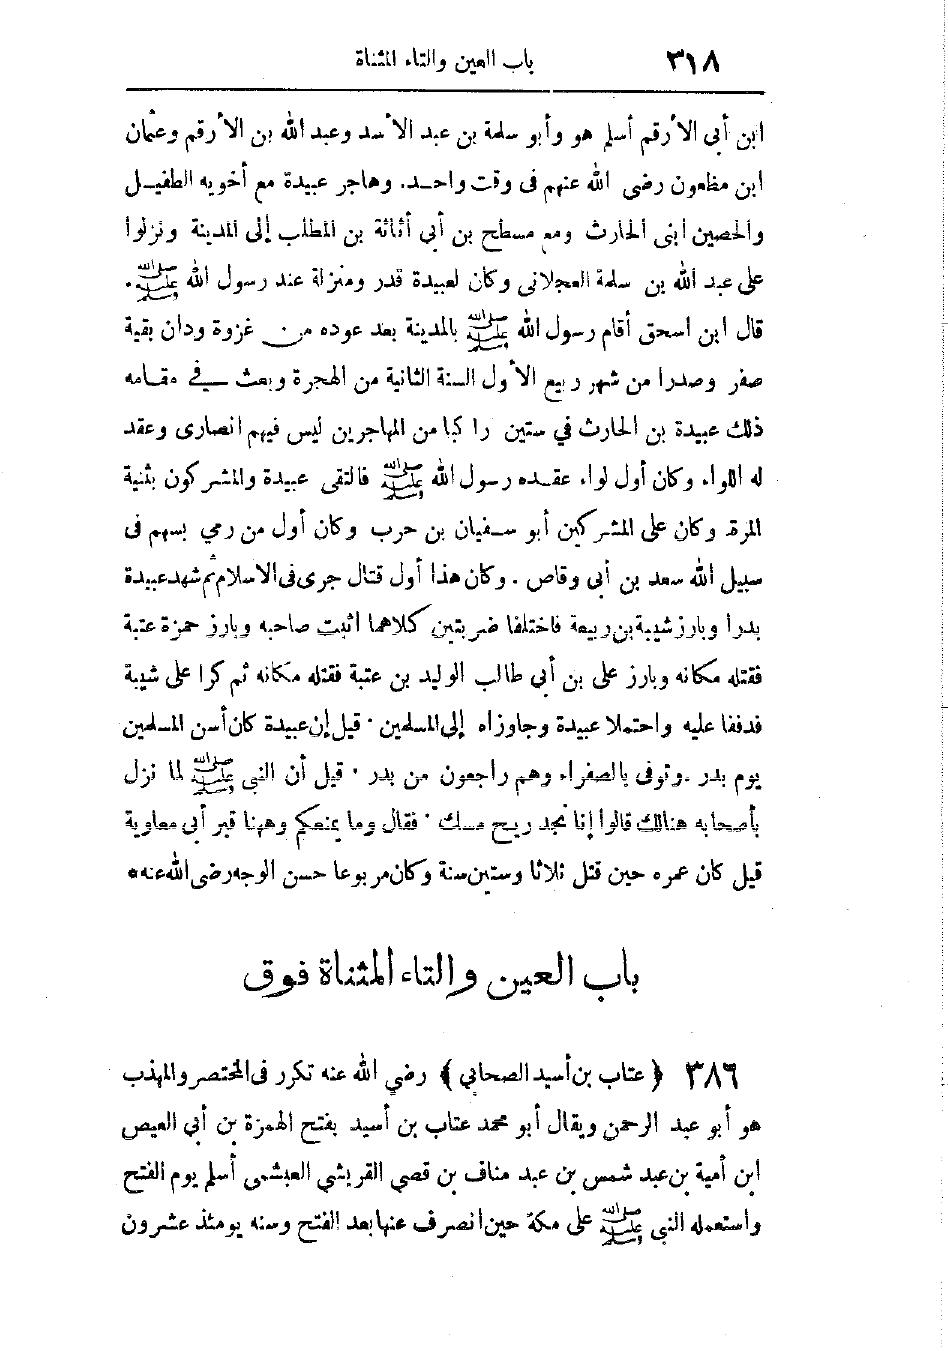 ٣١٨ باب العين والتاء المثناة
ابن أبى الأرقم أسلم هو وأبو سلمة بن عبد الأسد وعبد الله بن الأرقم وعثمان
ابن مظعون رضى الله عنهم فى وقت واحد. وهاجر عبيدة مع أخويه الطفيل
والحصين ابنى الحارث ومع مسطح بن أبي أثاثة بن المطلب إلى المدينة ونزلوا
على عبد الله بن سلمة العجلانى وكان لعبيدة قدر ومنزلة عند رسول الله ﷺ.
قال ابن اسحق أقام رسول الله ﷺ بالمدينة بعد عوده من غزوة ودان بقية
صفر وصدرا من شهر ربيع الأول السنة الثانية من الهجرة وبعث فى مقامه
ذلك عبيدة بن الحارث في ستين راكبا من المهاجرين ليس فيهم انصارى وعقد
له اللواء وكان أول لواء عقده رسول الله ﷺ فالتقى عبيدة والمشركون بثنية
المرة وكان على المشركين أبو سفيان بن حرب وكان أول من رمي بسهم فى
سبيل الله سعد بن أبى وقاص . وكان هذا أول قتال جرى فى الاسلام ثم شهد عبيدة
بدرا وبارز شيبة بن ربيعة فاختلفا ضربتين كلاهما اثبت صاحبه وبارز حمزة عتبة
فقتله مكانه وبارز على بن أبي طالب الوليد بن عتبة فقتله مكانه ثم كرا على شيبة
فدففا عليه واحتملا عبيدة وجاوزاه إلى المسلمين . قيل إن عبيدة كان أسن المسلمين
يوم بدر . وتوفى بالصفراء وهم راجعون من بدر . قيل أن النبى ﷺ لما نزل
بأصحابه هنالك قالوا إنا نجد ريح مسك . فقال وما يمنعكم وههنا قبر أبى معاوية
قيل كان عمره حين قتل ثلاثا وستين سنة وكان مربوعا حسن الوجه رضى الله عنه •
باب العين والتاء المثناة فوق
٣٨٦ ﴿ عتاب بن أسيد الصحابي ﴾ رضي الله عنه تكرر فى المختصر والمهذب
هو أبو عبد الرحمن ويقال أبو محمد عتاب بن أسيد بفتح الهمزة بن أبي العيص
ابن أمية بن عبد شمس بن عبد مناف بن قصي القريشي العبشمى أسلم يوم الفتح
واستعمله النبى ﷺ على مكة حين انصرف عنها بعد الفتح وسنه يومئذ عشرون